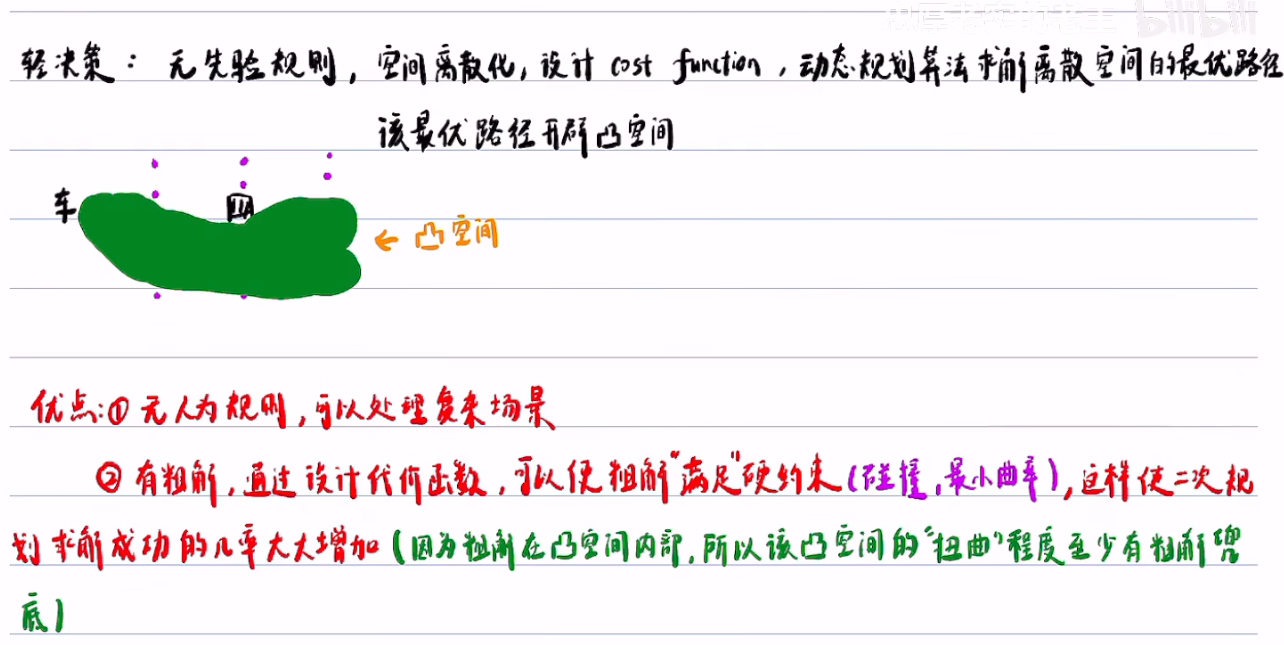 bilibili
轻决策：无先验规则，空间离散化，设计 cost function，动态规划算法求解离散空间的最优路径
该最优路径开辟凸空间
车
← 凸空间
优点：① 无人为规则，可以处理复杂场景
② 有粗解，通过设计代价函数，可以使粗解"满足"硬约束（碰撞，最小曲率），这样使二次规
划求解成功的几率大大增加（因为粗解在凸空间内部，所以该凸空间的"扭曲"程度至少有粗解兜
底）